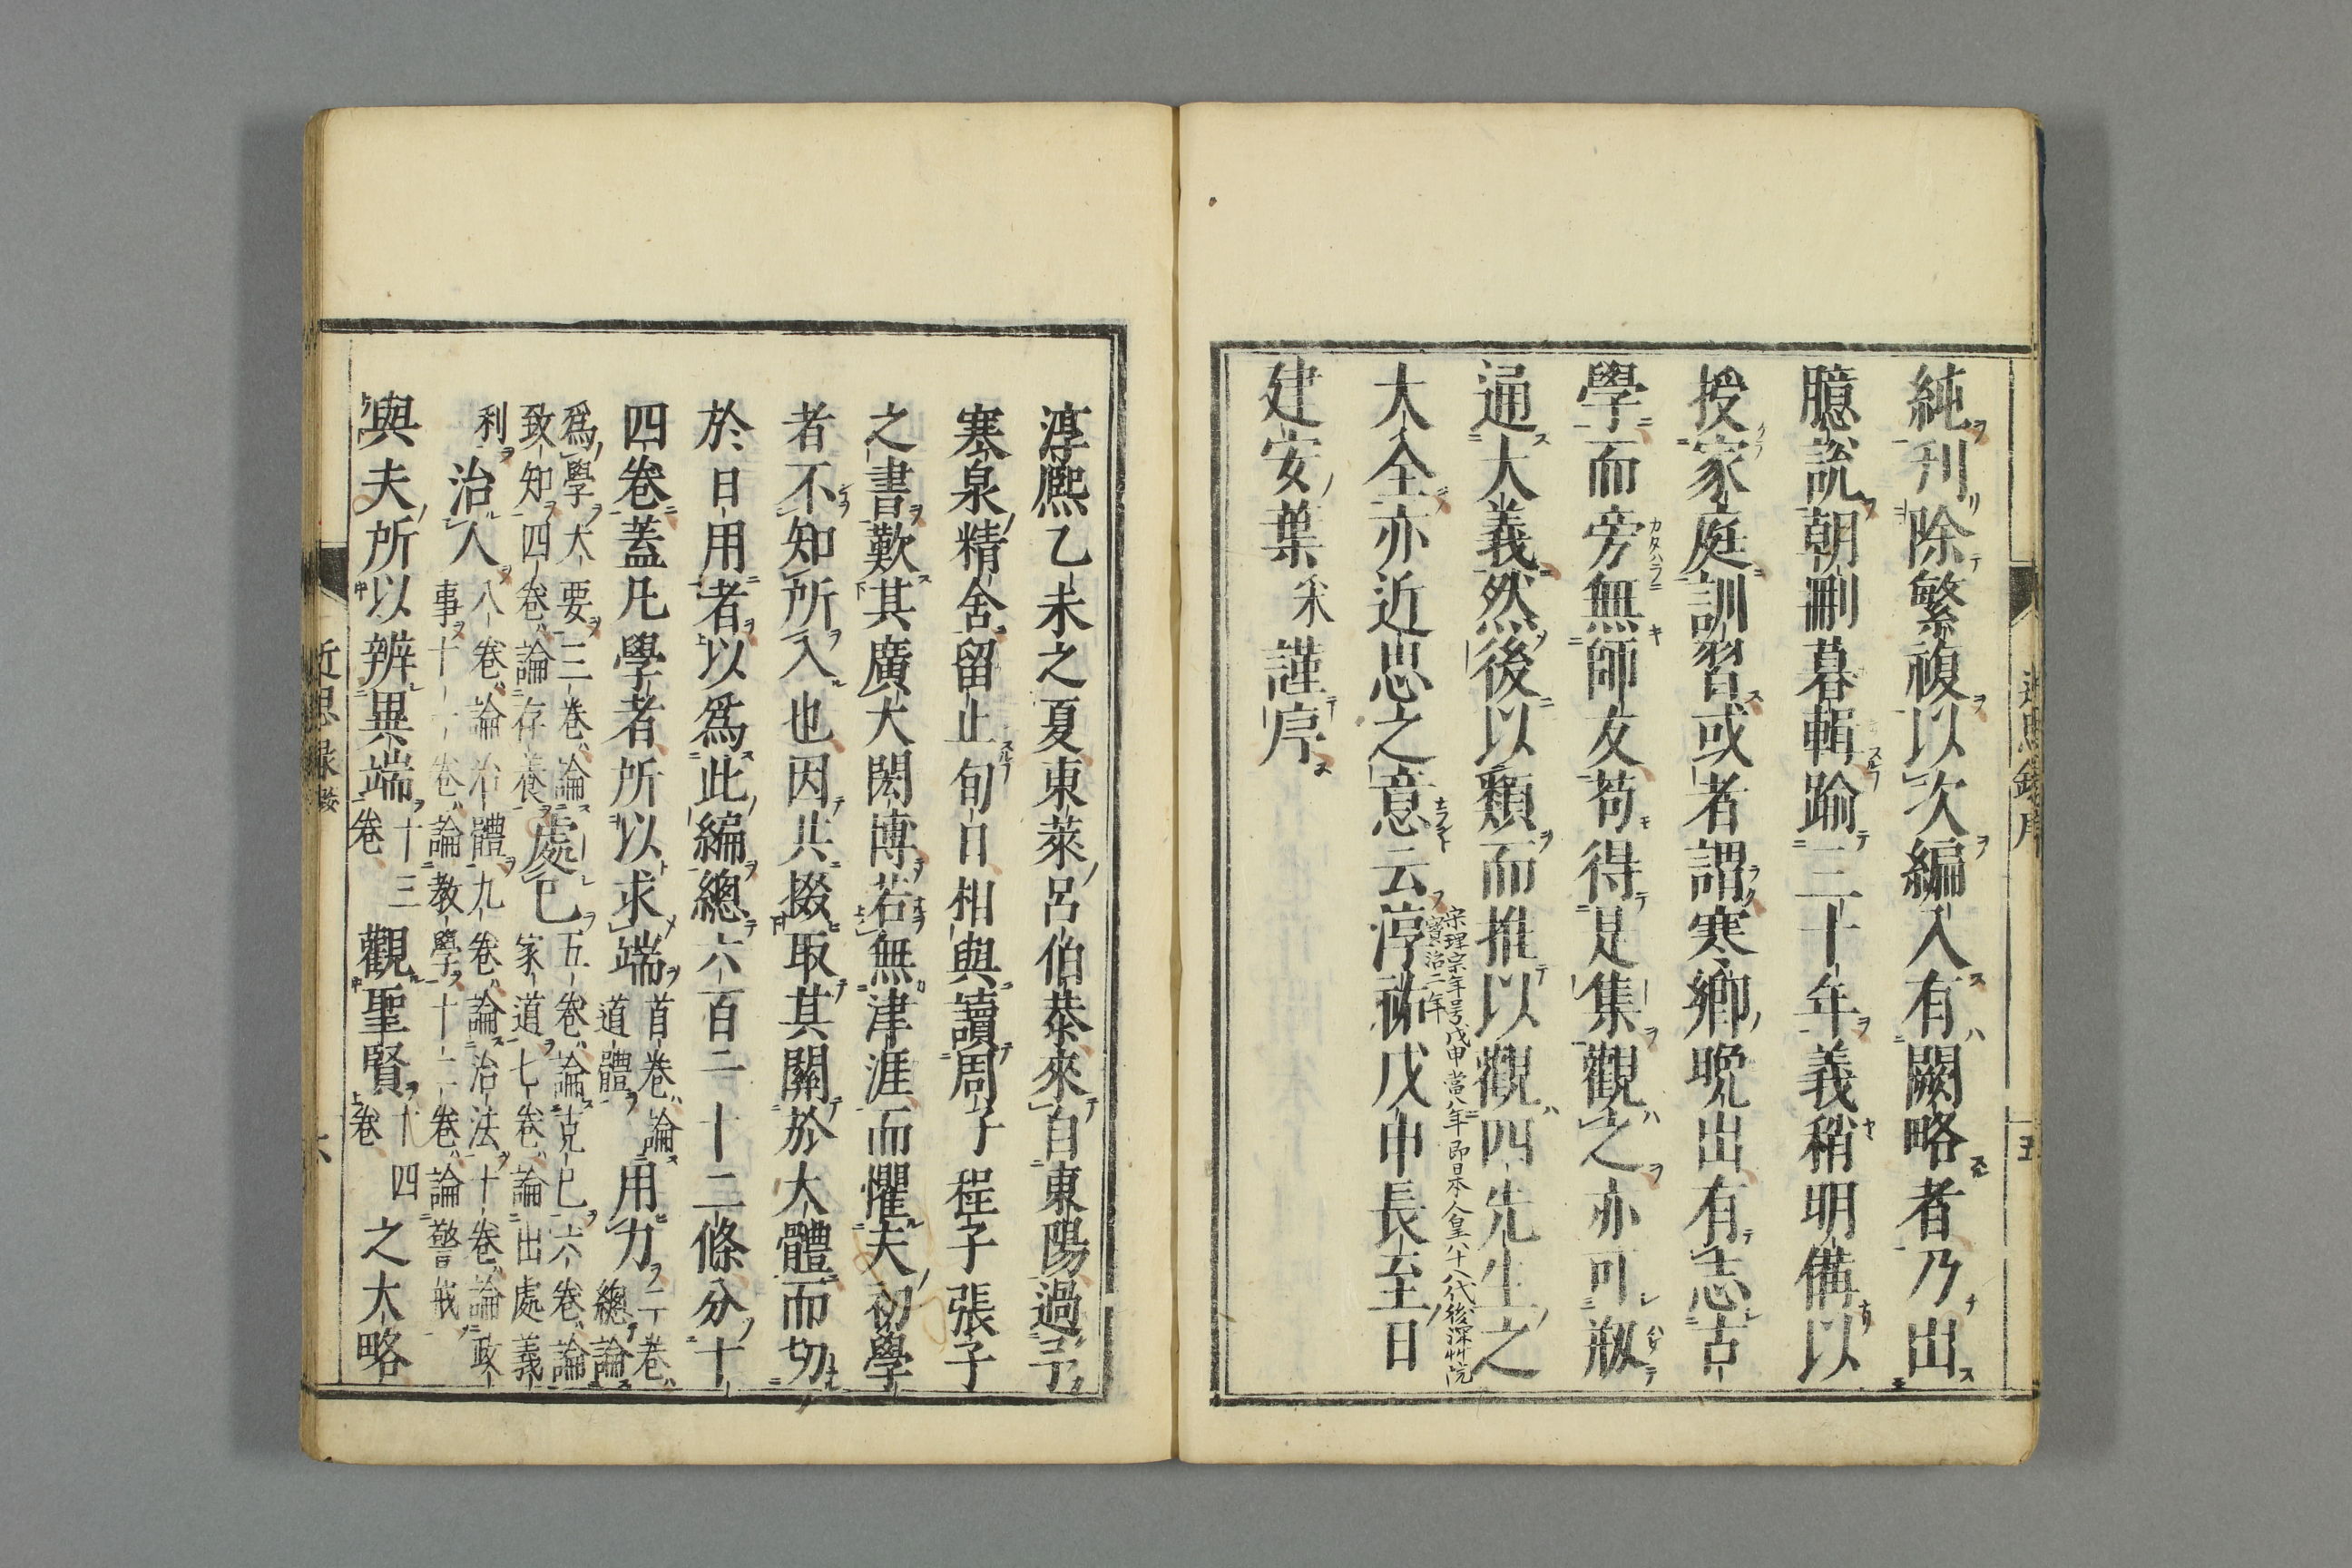 純刊除繁複以次編入有闕略者乃出
臆說朝刪暮輯踰三十年義稍明備以
授家庭訓習或者謂寒鄉晚出有志古
學而旁無師友苟得是集觀之亦可𭺗
通大義然後以類而推以觀四先生之
大全亦近思之意云淳祐戊申長至日
宋理宗年号戊申當八年即日本人皇八十八代後深艸院
寳治二年
建安葉采謹序
近思錄序
五
淳熈乙未之夏東萊呂伯恭來自東陽過予
寒泉精舍留止旬日相與讀周子程子張子
之書歎其廣大閎博若無津涯而懼夫初學
者不知所入也因共掇取其關於大體而切
於日用者以爲此編總六百二十二條分十
四卷蓋凡學者所以求端首卷論
道體用力二卷
總論
爲學大要三卷論
致知四卷論存養處己五卷論克己六卷論
家道七卷論出處義
利治人八卷論治體九卷論治法十卷論政
事十一卷論教學十二卷論警戒
與夫所以辨異端十三
卷觀聖賢十四
卷之大略
近思録
六